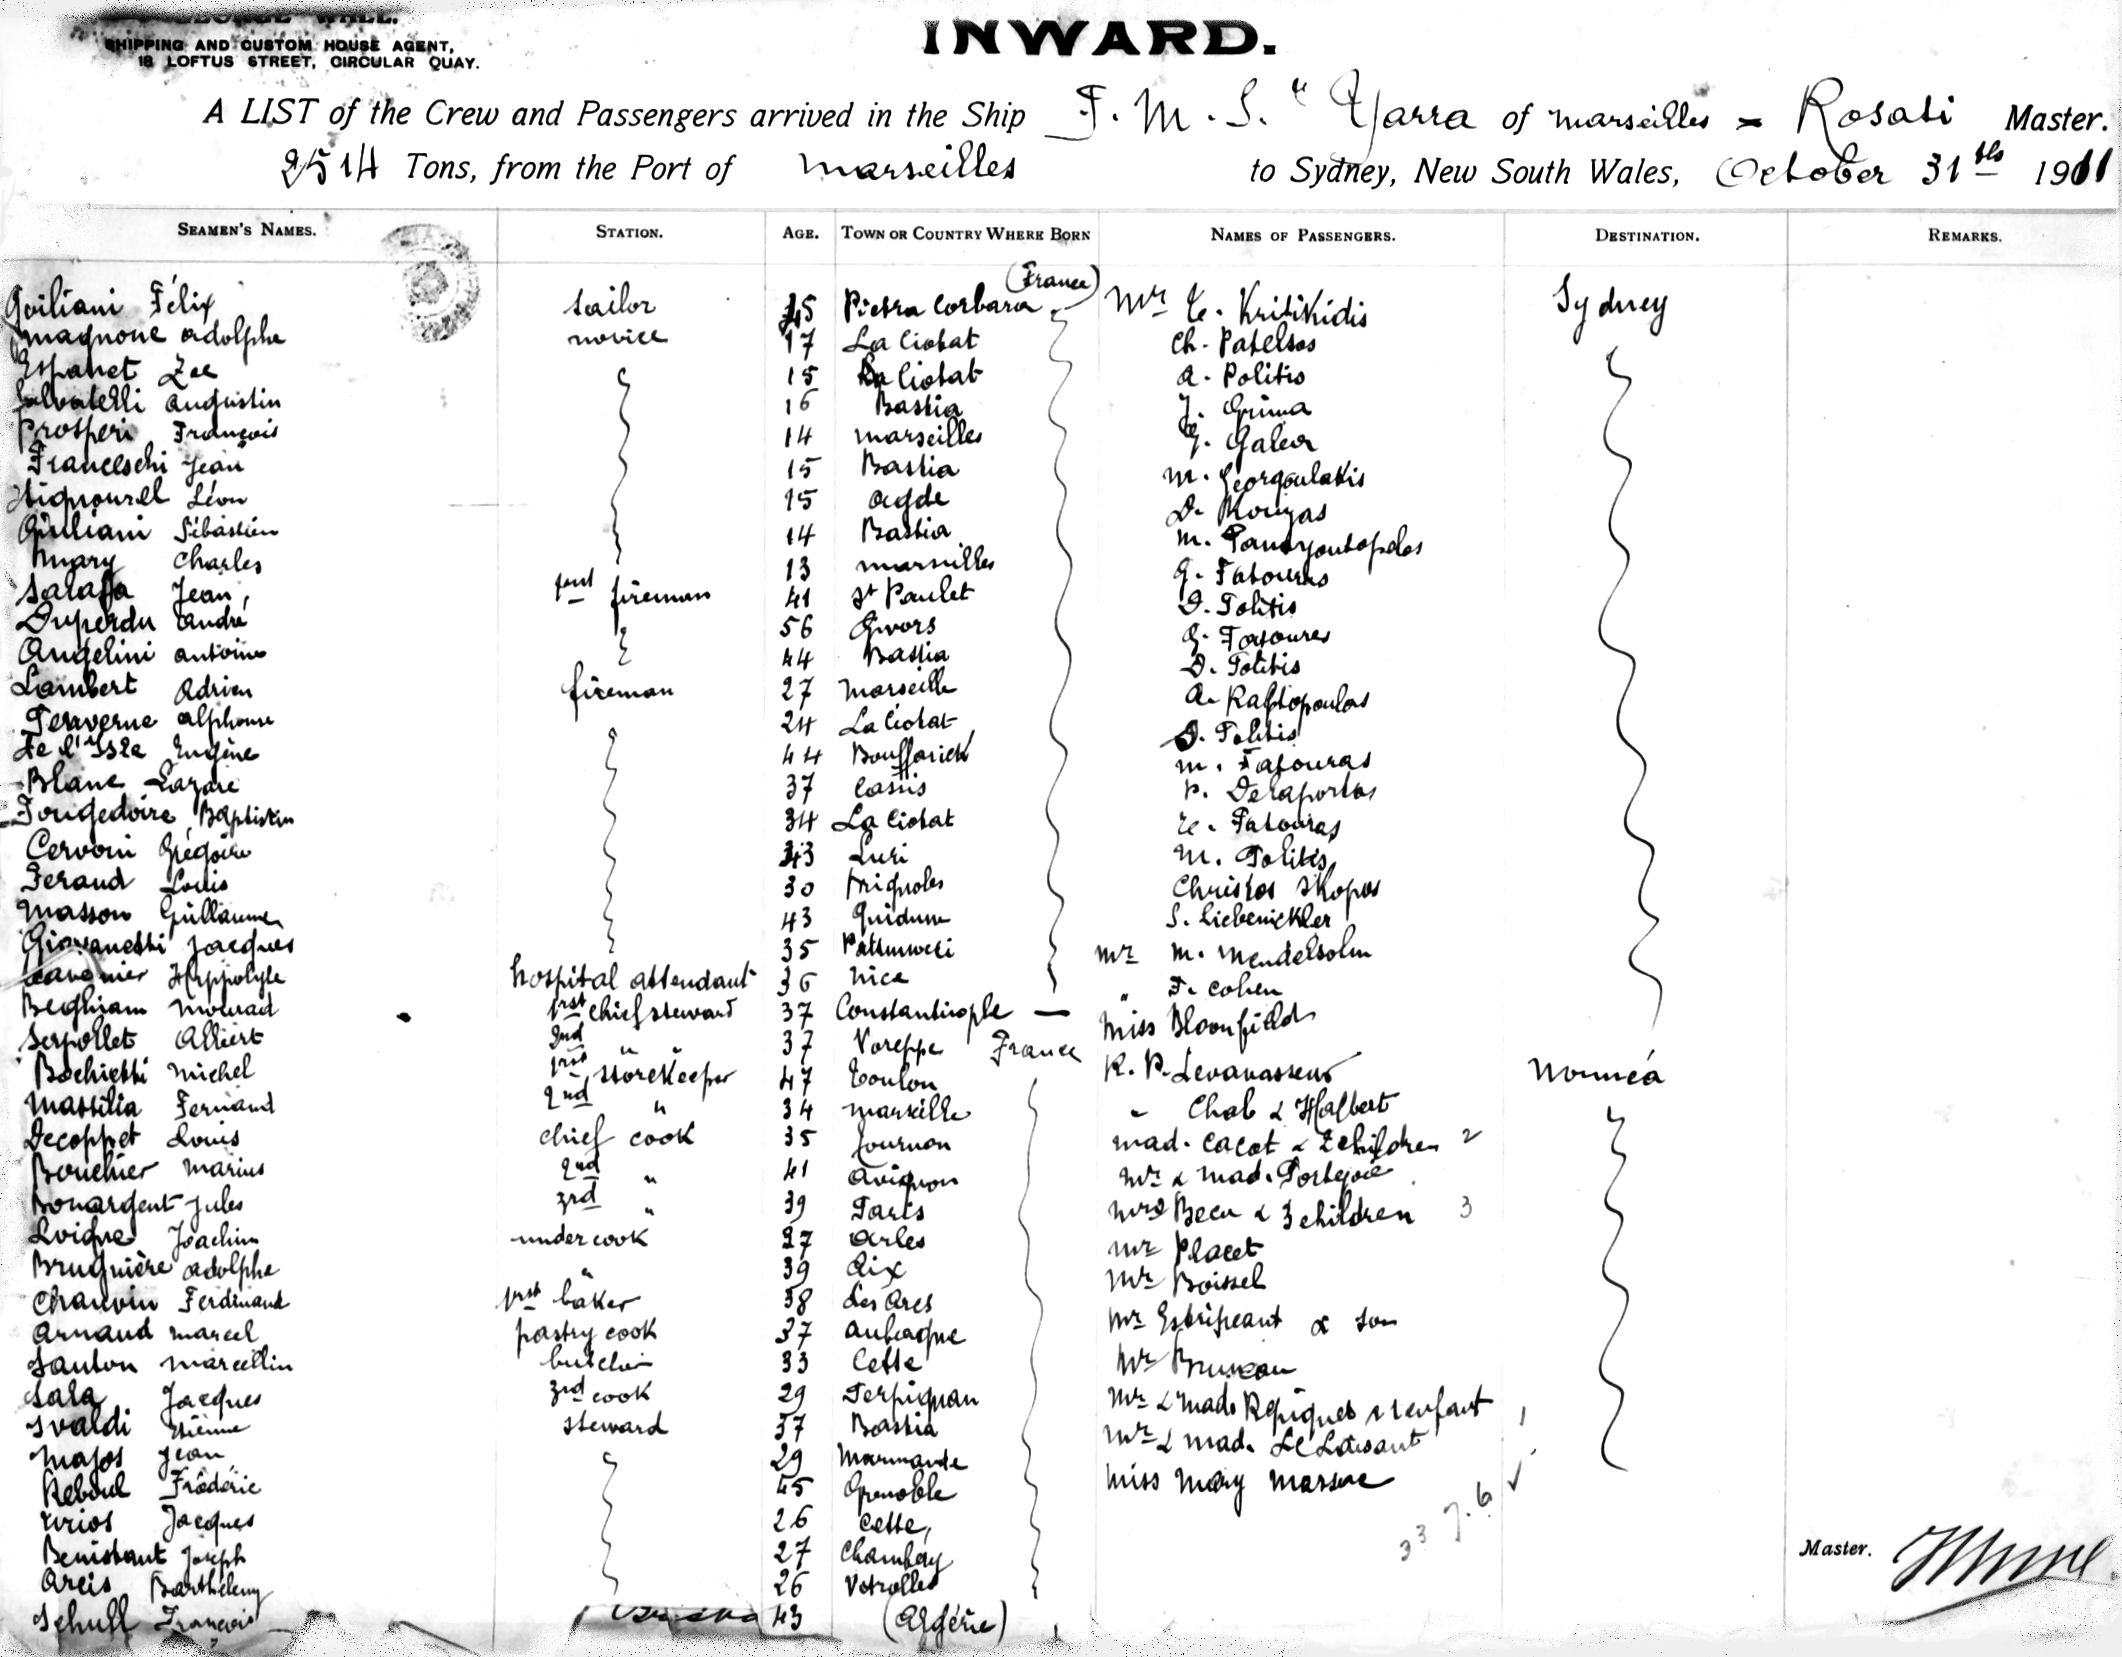 SHIPPING AND CUSTOM HOUSE AGENT,
18 LOFTUS STREET, CIRCULAR QUAY.
INWARD.
A LIST of the Crew and Passengers arrived in the Ship F.M.S. "Yarra of Marseilles = Rosati Master.
2514 Tons, from the Port of Marseilles to Sydney, New South Wales, October 31 1911
SEAMEN'S NAMES. STATION. AGE. TOWN OR COUNTRY WHERE BORN NAMES OF PASSENGERS. DESTINATION. REMARKS.
(France)
Guiliani Félix sailor 45 Pietra Corbara Mr Kritikidis Sydney
Magnone Adolphe novice 17 La Ciotat Ch. Patelsos
Espanet Zoe 15 La Ciotat A. Politis
Salvatelli Augustin 16 Bastia J. Grima
Prosperi François 14 Marseilles G. Galea
Franceschi Jean 15 Bastia M. Georgoulakis
Léon 15 Agde D.
Giuliani Sébastien 14 Bastia M. Panayoutopolos
Charles 13 Marseilles G. Fatouros
Jean 1st fireman 41 St Paulet D. Politis
Duperdu André 56 Givors G. Fatouros
Angelini Antoine 44 Bastia D. Politis
Lambert Adrien fireman 27 Marseille A. Raftopoulos
Alphonse 24 La Ciotat D. Politis
De l'Isle Eugène 44 Bouffarick M. Fatouras
Blanc Lazare 37 Cassis P. Delaportas
Fougedoire Baptistin 34 La Ciotat Fatouras
Cervoni Grégoire 43 Luri M. Politis
Feraud Louis 30 Christos Skopos
Masson Guillaume 43 S. Liebenickler
Giovanetti Jacques 35 Mr M. Mendelsohn
Hippolyte hospital attendant 36 Nice " F. Cohen
Beghiam Mourad 1rst chief steward 37 Constantinople — Miss Bloomfield
Serpollet Albert 2nd " " 37 Voreppe France R. P. Levavasseur Nouméa
Bochietti Michel 1rst storekeeper 47 Toulon " Chab & Halbert
Massilia Fernand 2nd " 34 Marseille Mad. Cacot & 2 children 2
Decoppet Louis chief cook 35 Tournon Mr & Mad. Portejoie
Bouchier Marius 2nd " 41 Avignon Mrs Becu & 3 children 3
Bonargent Jules 3rd " 39 Paris Mr Placet
Joachim under cook 27 Arles Mr Boissel
Bruguière Adolphe " 39 Aix
Chauvin Ferdinand 1rst baker 38 Les Arcs Mr Estripeaut & son
Arnaud Marcel pastry cook 37 Aubagne Mr Bruneau
Santon Marcellin butcher 33 Cette
Sala Jacques 3rd cook 29 Perpignan Mr & Mad. & 1 enfant 1
Ivaldi Etienne steward 37 Bastia Mr & Mad. Le Loisant
Majos Jean 29 Marmande Miss Mary
Reboul Frédéric 45 Grenoble
Jacques 26 Cette
Benistant Joseph 27 Chambéry
Arcis Barthélemy 26
Schull François 43 (Algérie)
33
Master.